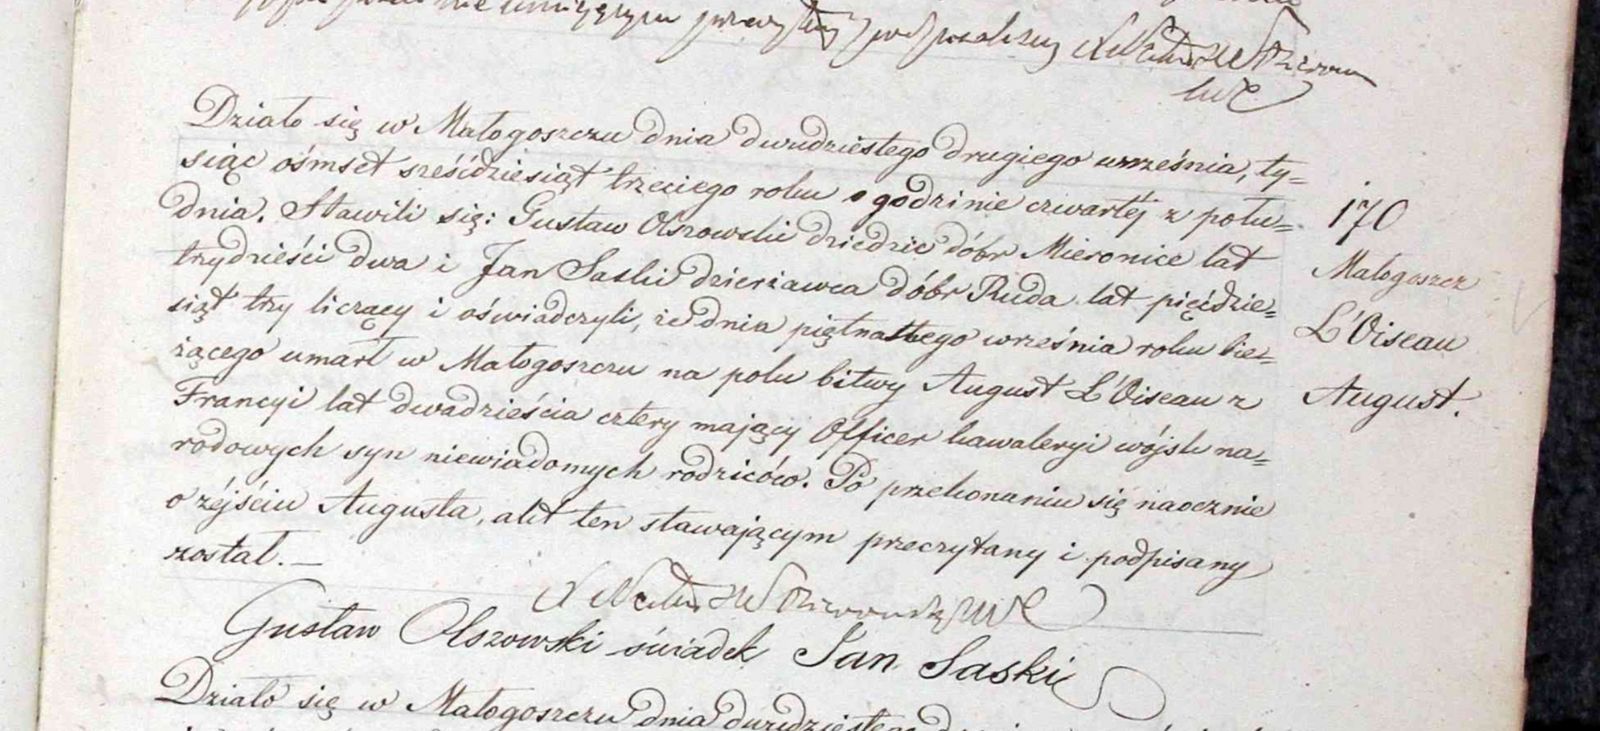 nie umiejącym przeczytany podpisaliśmy
Działo się w Małogoszczu dnia dwudziestego drugiego września, ty=
siąc ośmset sześćdziesiąt trzeciego roku o godzinie czwartej z połu=
dnia. Stawili się: Gustaw Olszowski dziedzic dóbr Mieronice lat
trzydzieści dwa i Jan Saski dzierżawca dóbr Ruda lat pięćdzie=
siąt trzy liczący i oświadczyli, że dnia piętnastego września roku bie=
żącego umarł w Małogoszczu na polu bitwy August L'Oiseau z
Francyi lat dwadzieścia cztery mający Officer kawaleryi wójsk na=
rodowych syn niewiadomych rodziców. Po przekonaniu się naocznie
o zéjściu Augusta, akt ten stawającym przeczytany i podpisany
został. —
Gustaw Olszowski świadek Jan Saski
170
Małogoszcz
L'Oiseau
August.
Działo się w Małogoszczu dnia dwudziestego